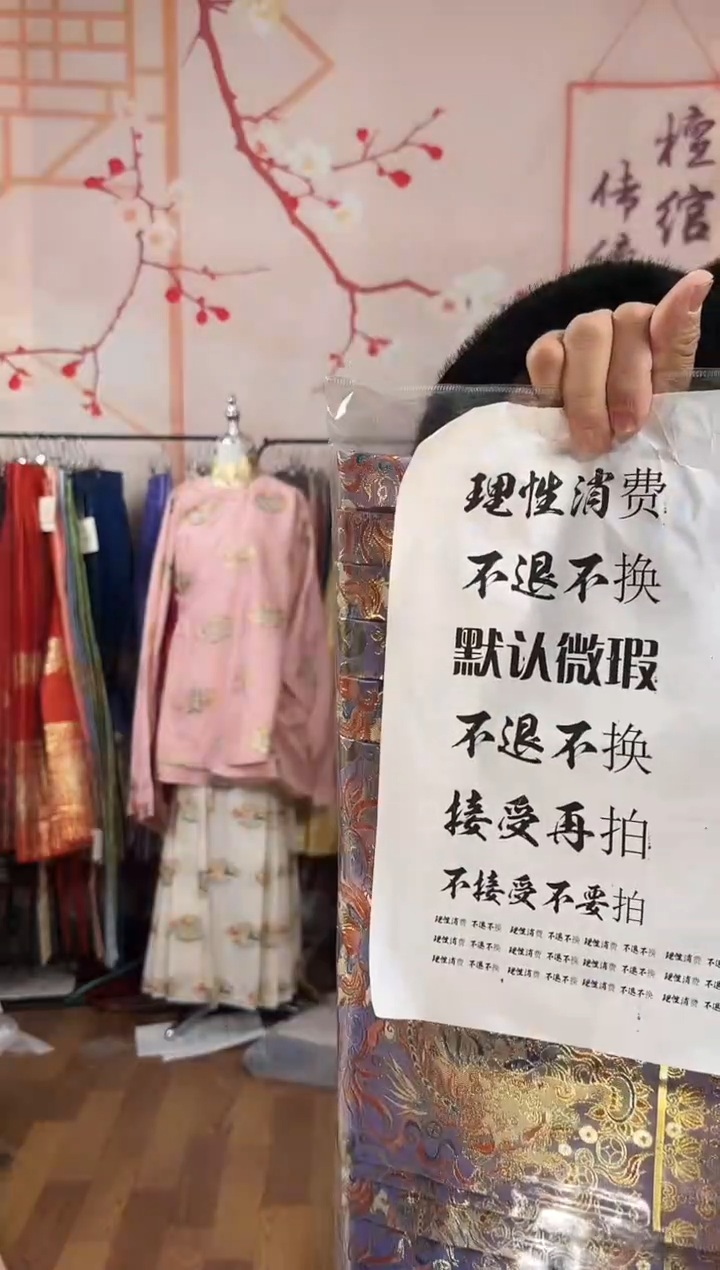 檀绾
传统
理性消费
不退不换
默认微瑕
不退不换
接受再拍
不接受不要拍
理性消费 不退不换 理性消费 不退不换 理性消费 不退不换 理性消费 不退
理性消费 不退不换 理性消费 不退不换 理性消费 不退不换 理性消费 不退
理性消费 不退不换 理性消费 不退不换 理性消费 不退不换 理性消费 不退